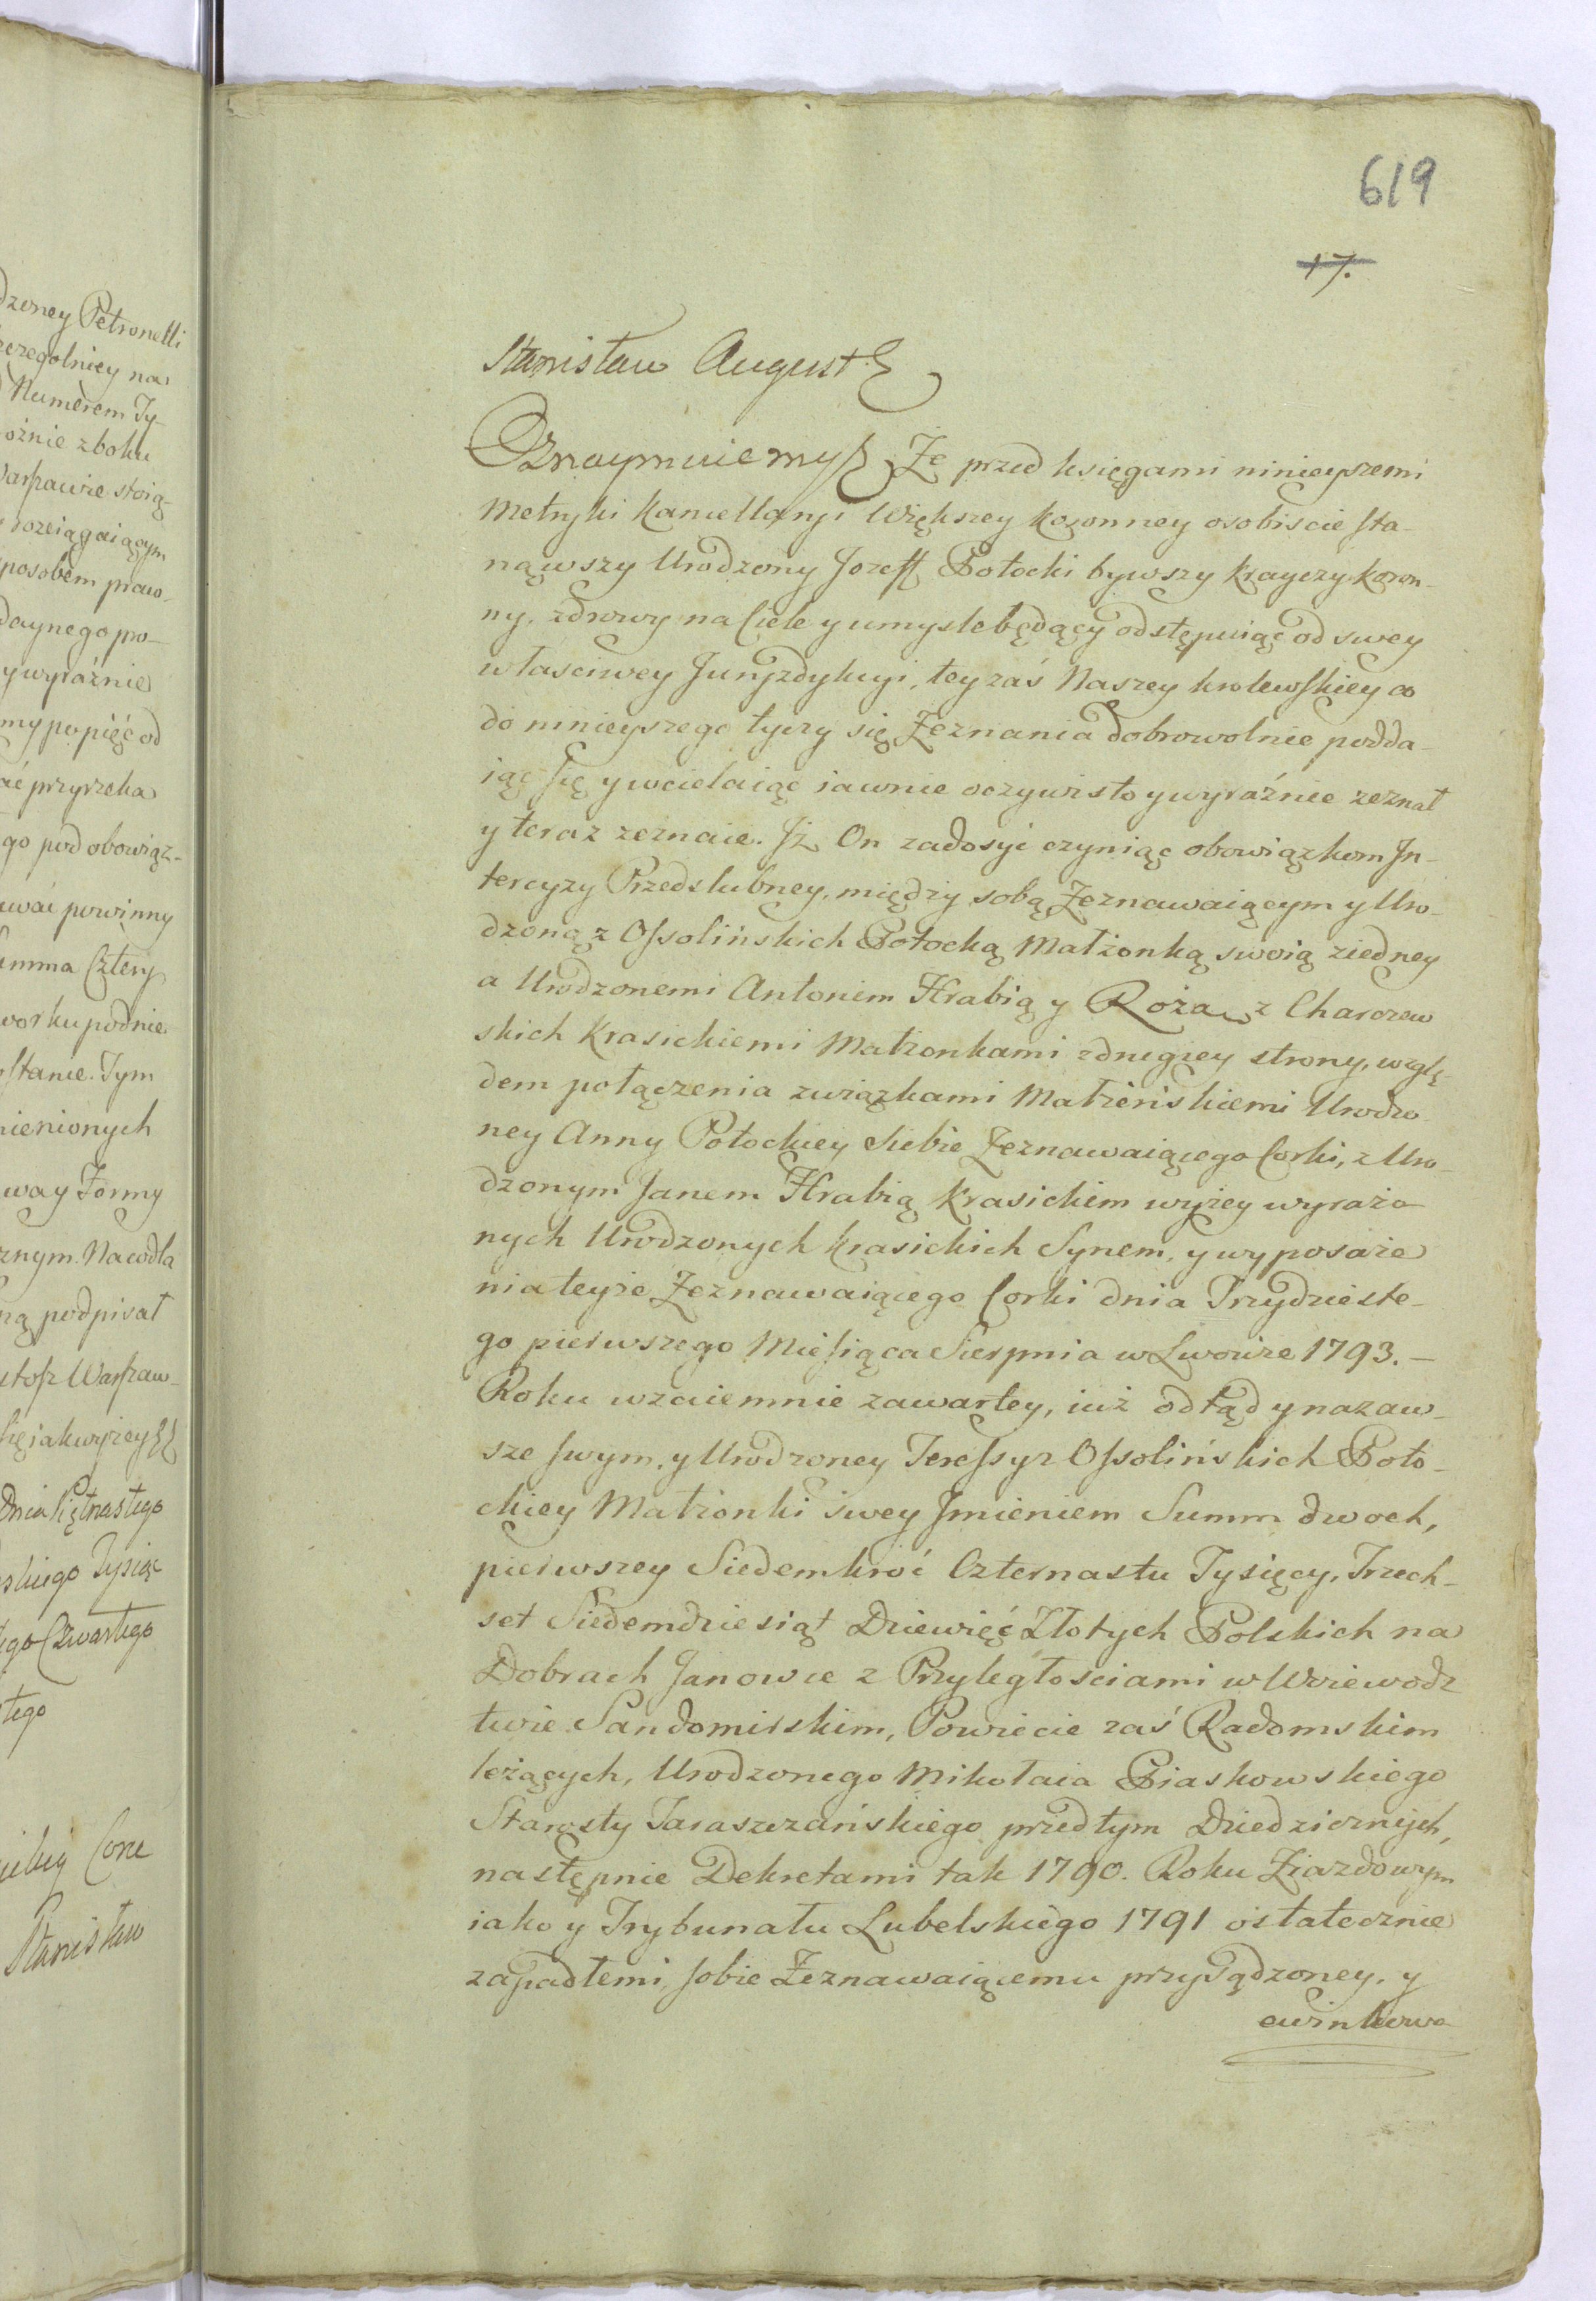 619
17.
Stanisław August
Oznaymuiemy Że przed księgami ninieyszemi
Metryki Kancellaryi Większey Koronney osobiście sta-
nąwszy Urodzony Jozeff Potocki bywszy Krayczy Koron-
ny, zdrowy na Ciele y umysle będący odstępuiąc od swey
właściwey Juryzdykcyi, tey zaś Naszey krolewskiey co
do ninieyszego tyczy się Zeznania dobrowolnie podda-
iąc się y wcielaiąc iawnie oczywisto y wyraźnie zeznał
y teraz zeznaie. Jż On zadosyć czyniąc obowiązkom In-
tercyzy Przedslubney, między sobą Zeznawaiącym y Uro-
dzoną z Ossolińskich Potocką Małżonką swoią ziedney
a Urodzonemi Antonim Hrabią y Roża z Charczew
skich Krasickiemi Małżonkami zdrugiey strony, wzglę-
dem połączenia związkami Małżeńskiemi Urodzo
ney Anny Potockiey Siebie Zeznawaiącego Corki, z Uro-
dzonym Janem Hrabią Krasickiem wyżey wyrażo
nych Urodzonych Krasickich Synem, y wyposaże
nia teyże Zeznawaiącego Corki dnia Trzydzieste-
go pierwszego Miesiąca Sierpnia w Lwowie 1793. -
Roku wzaiemnie zawartey, iuż odtąd y nazaw-
sze swym, y Urodzoney Teressy z Ossolińskich Poto-
ckiey Małżonki swey Jmieniem Summ dwoch,
pierwszey Siedemkroć Czternastu Tysięcy, Trzech-
set Siedemdziesiąt Dziewięć Złotych Polskich na
Dobrach Janowce z Przyległościami w Woiewodz
twie Sandomirskim, Powiecie zaś Radomskim
leżących, Urodzonego Mikołaia Piaskowskiego
Starosty Taraszczańskiego przedtym Dziedzicznych,
następnie Dekretami tak 1790. Roku Ziazdowym
iako y Trybunału Lubelskiego 1791 ostatecznie
zapadłemi, sobie Zeznawaiącemu przysądzoney, y
ewinkowa
dzoney Petronelli
zczegolniey na
Numerem Ty-
ożnie z boku
Warszawie stoią-
rozciągaiącym
sposobem praw-
daynego po-
y wyraźnie
my popięć od
ać przyrzeka
go pod obowiąz-
wać powinny
umma Cztery
worku podnie
stanie. Tym
mienionych
way Formy
znym. Na co dla
ną podpisał
Warszaw-
się iak wyżey
Dnia Piętnastego
skiego Tysiąc
ego Czwartego
tego
Stanisław